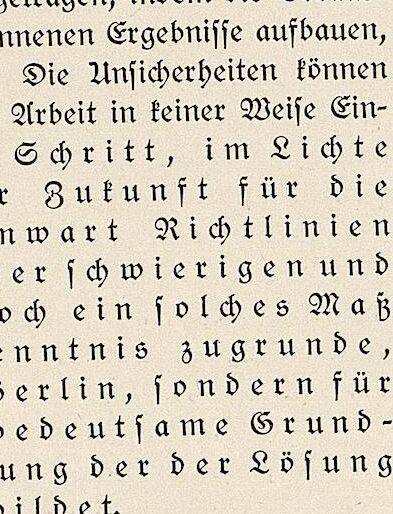 nnenen Ergebnisse aufbauen,
Die Unsicherheiten können
Arbeit in keiner Weise Ein-
Schritt, im Lichte
r Zukunft für die
nwart Richtlinien
er schwierigen und
och ein solches Maß
enntnis zugrunde,
Berlin, sondern für
bedeutsame Grund-
ung der der Lösung
bildet.